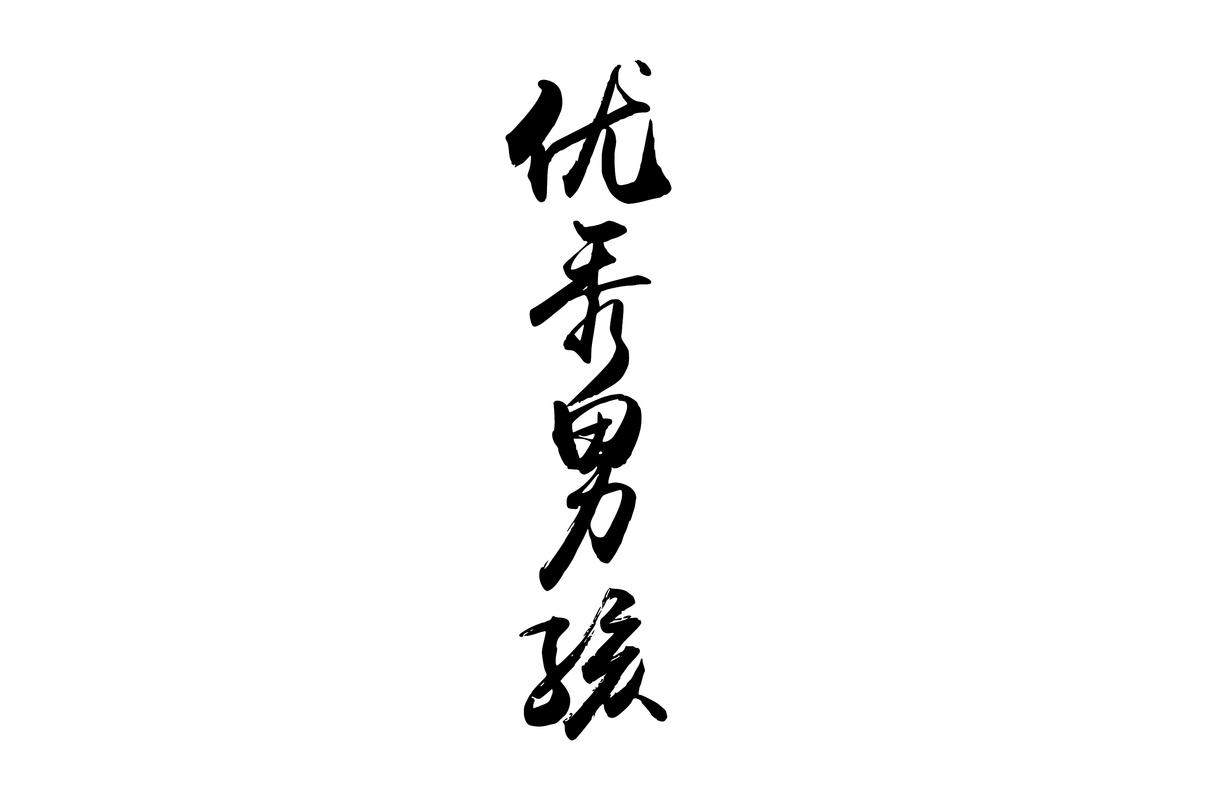 优秀男孩